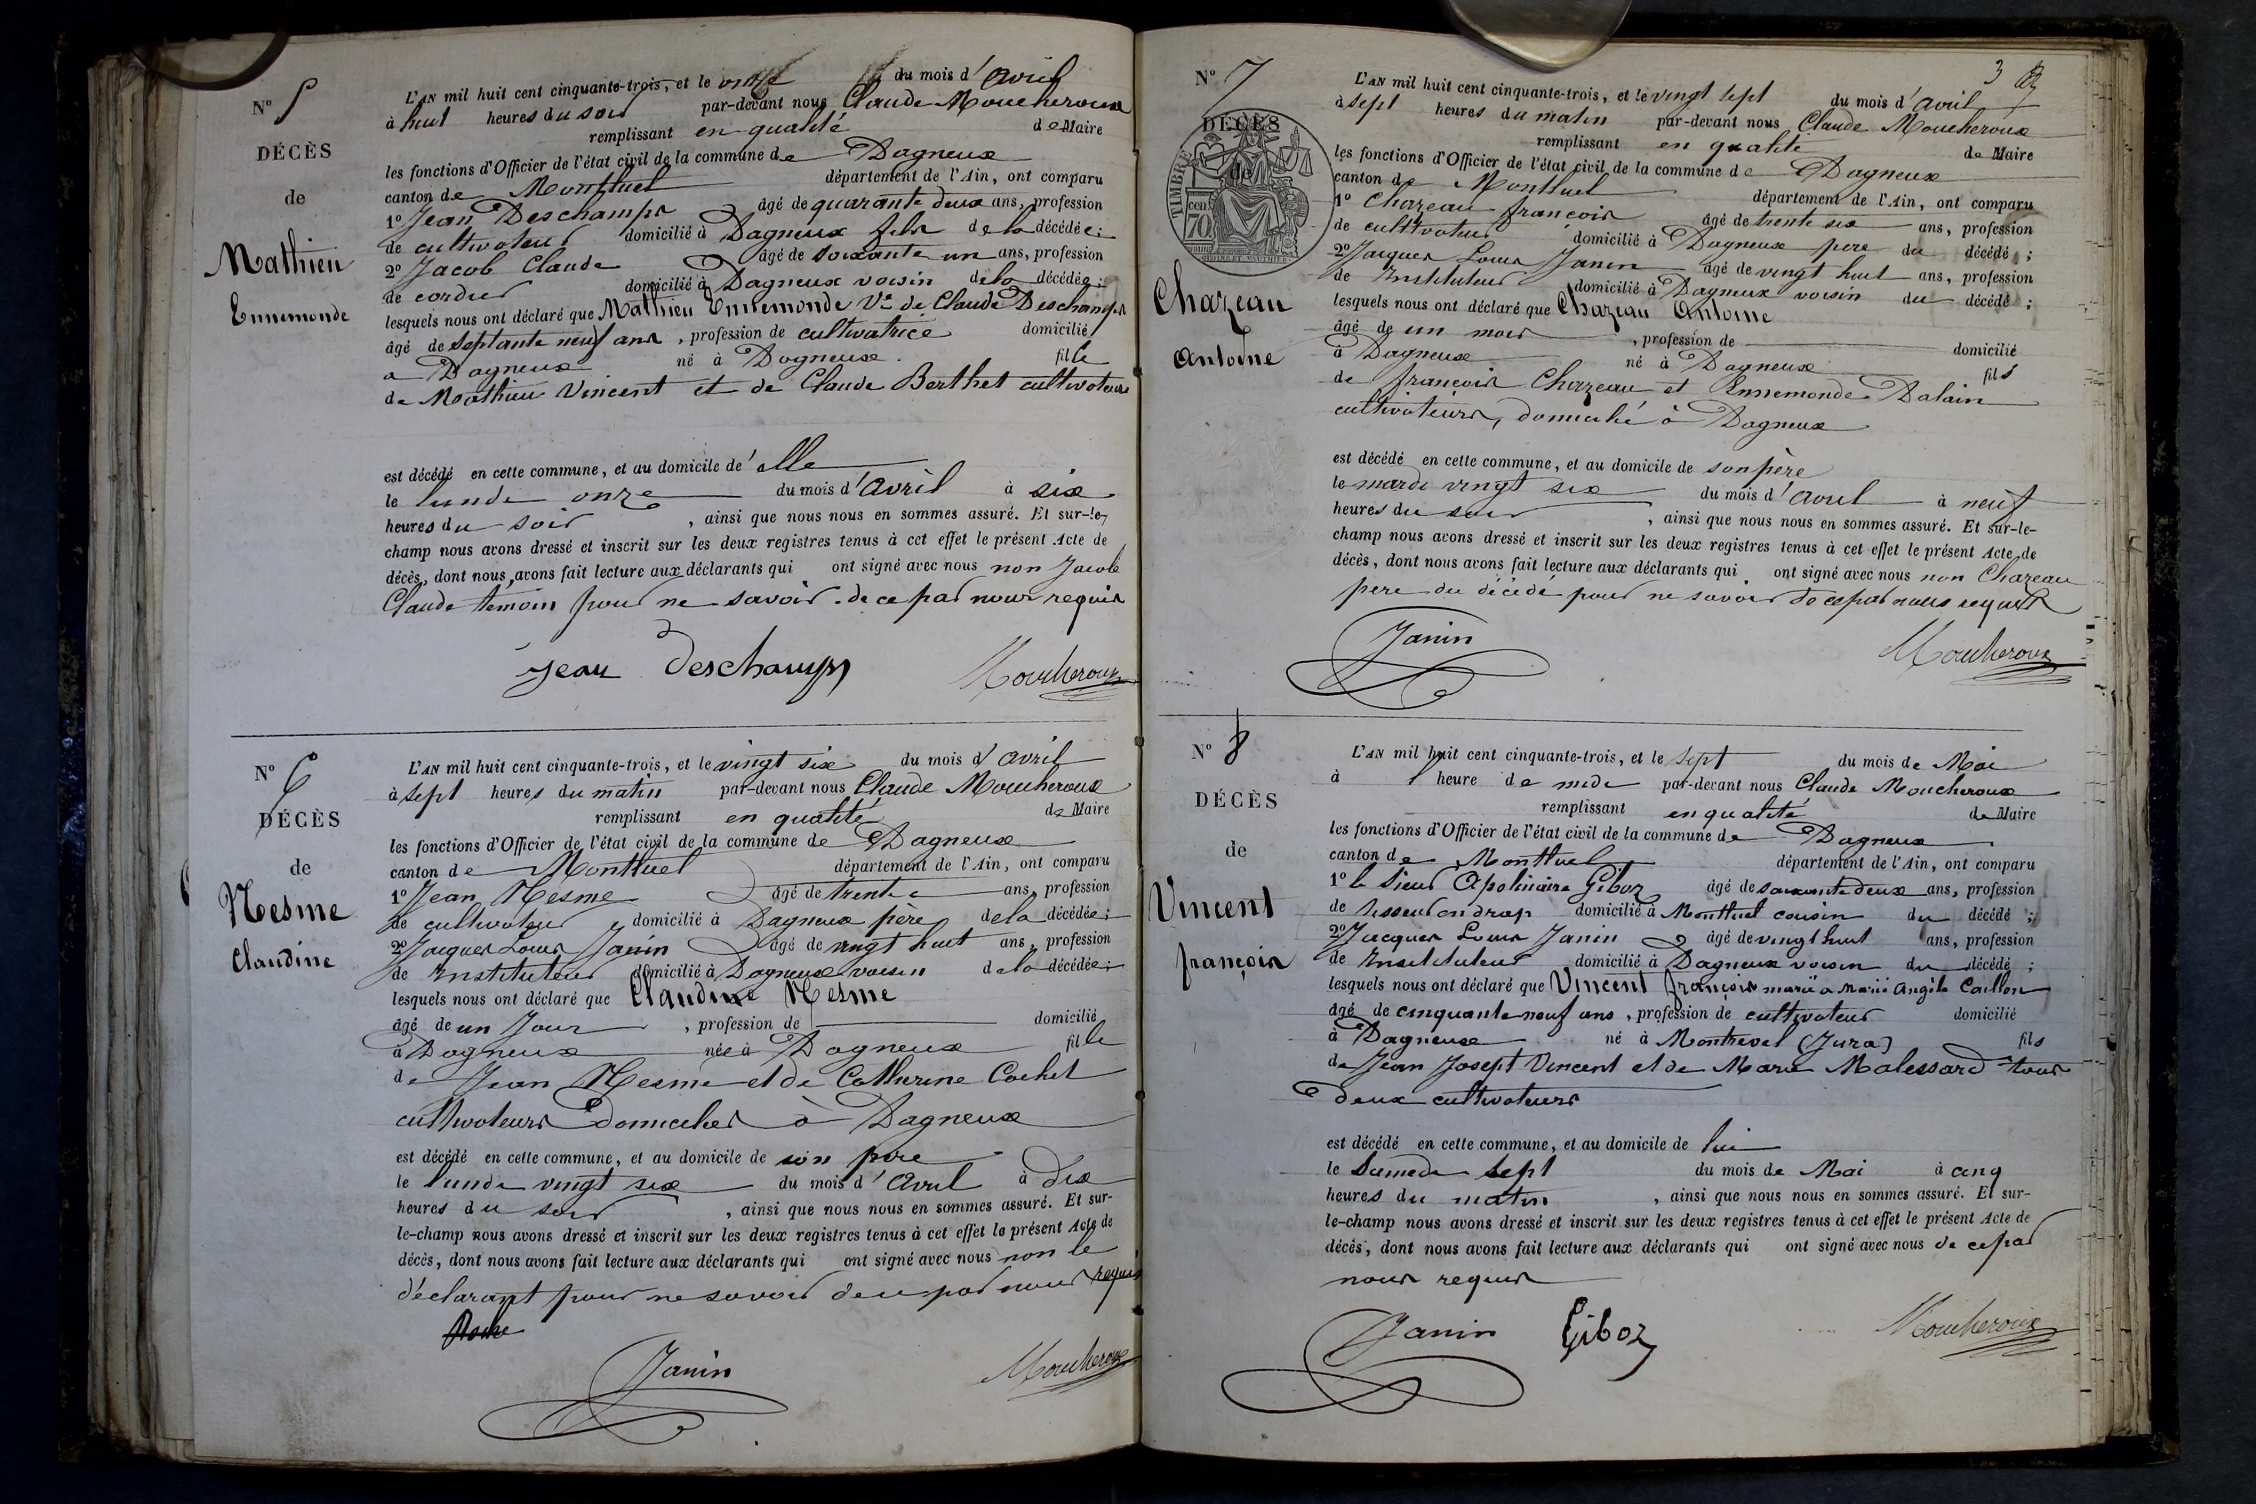 N° 5
DÉCÈS
de
Mathieu
Ennemonde
L'AN mil huit cent cinquante-trois, et le onze du mois d'avril
à huit heures du soir par-devant nous Claude Moucheroux
remplissant en qualité de Maire
les fonctions d'Officier de l'état civil de la commune de Dagneux
canton de Montluel département de l'Ain, ont comparu
1° Jean Deschamps âgé de quarante deux ans, profession
de cultivateur domicilié à Dagneux fils de la décédée;
2° Jacob Claude âgé de soixante un ans, profession
de cordier domicilié à Dagneux voisin de la décédée;
lesquels nous ont déclaré que Mathieu Ennemonde Ve de Claude Deschamps
âgé de septante neuf ans, profession de cultivatrice domicilié
a Dagneux né à Dagneux fille
de Mathieu Vincent et de Claude Berthet cultivateurs
est décédé en cette commune, et au domicile de' elle
le lundi onze du mois d'avril à six
heures du soir, ainsi que nous nous en sommes assuré. Et sur-le-
champ nous avons dressé et inscrit sur les deux registres tenus à cet effet le présent Acte de
décès, dont nous avons fait lecture aux déclarants qui ont signé avec nous non Jacob
Claude témoin pour ne savoir de ce par nous requis
Jean Deschamps Moucheroux
N° 6
DÉCÈS
de
Nesme
Claudine
L'AN mil huit cent cinquante-trois, et le vingt six du mois d'avril
à sept heures du matin par-devant nous Claude Moucheroux
remplissant en qualité de Maire
les fonctions d'Officier de l'état civil de la commune de Dagneux
canton de Montluel département de l'Ain, ont comparu
1° Jean Nesme âgé de trente ans, profession
de cultivateur domicilié à Dagneux père de la décédée;
2° Jacques Louis Janin âgé de vingt huit ans, profession
de Instituteur domicilié à Dagneux voisin de la décédée;
lesquels nous ont déclaré que Claudine Nesme
âgé de un Jour, profession de domicilié
à Dagneux née à Dagneux fille
de Jean Nesme et de Catherine Cochet
cultivateurs Domiciliés à Dagneux
est décédé en cette commune, et au domicile de son père
le lundi vingt six du mois d'avril à dix
heures du soir, ainsi que nous nous en sommes assuré. Et sur-
le-champ nous avons dressé et inscrit sur les deux registres tenus à cet effet le présent Acte de
décès, dont nous avons fait lecture aux déclarants qui ont signé avec nous non le
déclarant pour ne savoir de ce par nous requis
Janin Moucheroux
3
N° 7
DÉCÈS
de
TIMBRE
cen
70
Chazeau
Antoine
L'AN mil huit cent cinquante-trois, et le vingt sept du mois d'avril
à sept heures du matin par-devant nous Claude Moucheroux
remplissant en qualité de Maire
les fonctions d'Officier de l'état civil de la commune de Dagneux
canton de Montluel département de l'Ain, ont comparu
1° Chazeau françois âgé de trente six ans, profession
de cultivateur domicilié à Dagneux pere du décédé;
2° Jacques Louis Janin âgé de vingt huit ans, profession
de Instituteur domicilié à Dagneux voisin du décédé;
lesquels nous ont déclaré que Chazeau Antoine
âgé de un mois, profession de domicilié
à Dagneux né à Dagneux fils
de françois Chazeau et Ennemonde Dalain
cultivateurs, domicilié à Dagneux
est décédé en cette commune, et au domicile de son père
le mardi vingt six du mois d'avril à neuf
heures du soir, ainsi que nous nous en sommes assuré. Et sur-le-
champ nous avons dressé et inscrit sur les deux registres tenus à cet effet le présent Acte de
décès, dont nous avons fait lecture aux déclarants qui ont signé avec nous non Chazeau
pere du décédé pour ne savoir de ce par nous requis
Janin Moucheroux
N° 8
DÉCÈS
de
Vincent
françois
L'AN mil huit cent cinquante-trois, et le sept du mois de Mai
à heure de midi par-devant nous Claude Moucheroux
remplissant en qualité de Maire
les fonctions d'Officier de l'état civil de la commune de Dagneux
canton de Montluel département de l'Ain, ont comparu
1° le Sieur Apolinaire Giboz âgé de soixante deux ans, profession
de tisseur en drap domicilié à Montluel cousin du décédé;
2° Jacques Louis Janin âgé de vingt huit ans, profession
de Instituteur domicilié à Dagneux voisin du décédé;
lesquels nous ont déclaré que Vincent françois marié a Marie Angèle Caillon
âgé de cinquante neuf ans, profession de cultivateur domicilié
à Dagneux né à Montrevel (Jura) fils
de Jean Josept Vincent et de Marie Malessard tous
deux cultivateurs
est décédé en cette commune, et au domicile de lui
le Samedi sept du mois de Mai à cinq
heures du matin, ainsi que nous nous en sommes assuré. Et sur-
le-champ nous avons dressé et inscrit sur les deux registres tenus à cet effet le présent Acte de
décès, dont nous avons fait lecture aux déclarants qui ont signé avec nous de ce par
nous requis
Janin Giboz Moucheroux